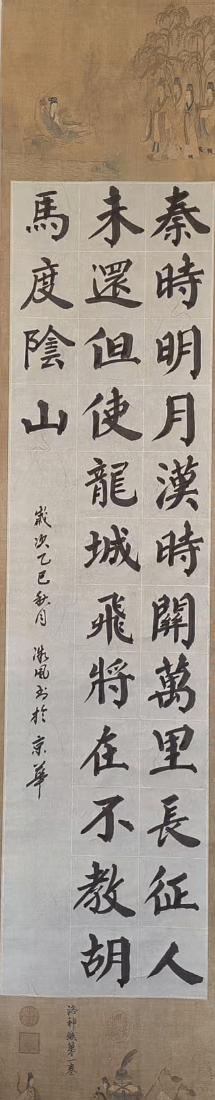 秦時明月漢時關萬里長征人
未還但使龍城飛將在不教胡
馬度陰山
歲次乙巳秋月 微風書於京華
洛神賦第一卷